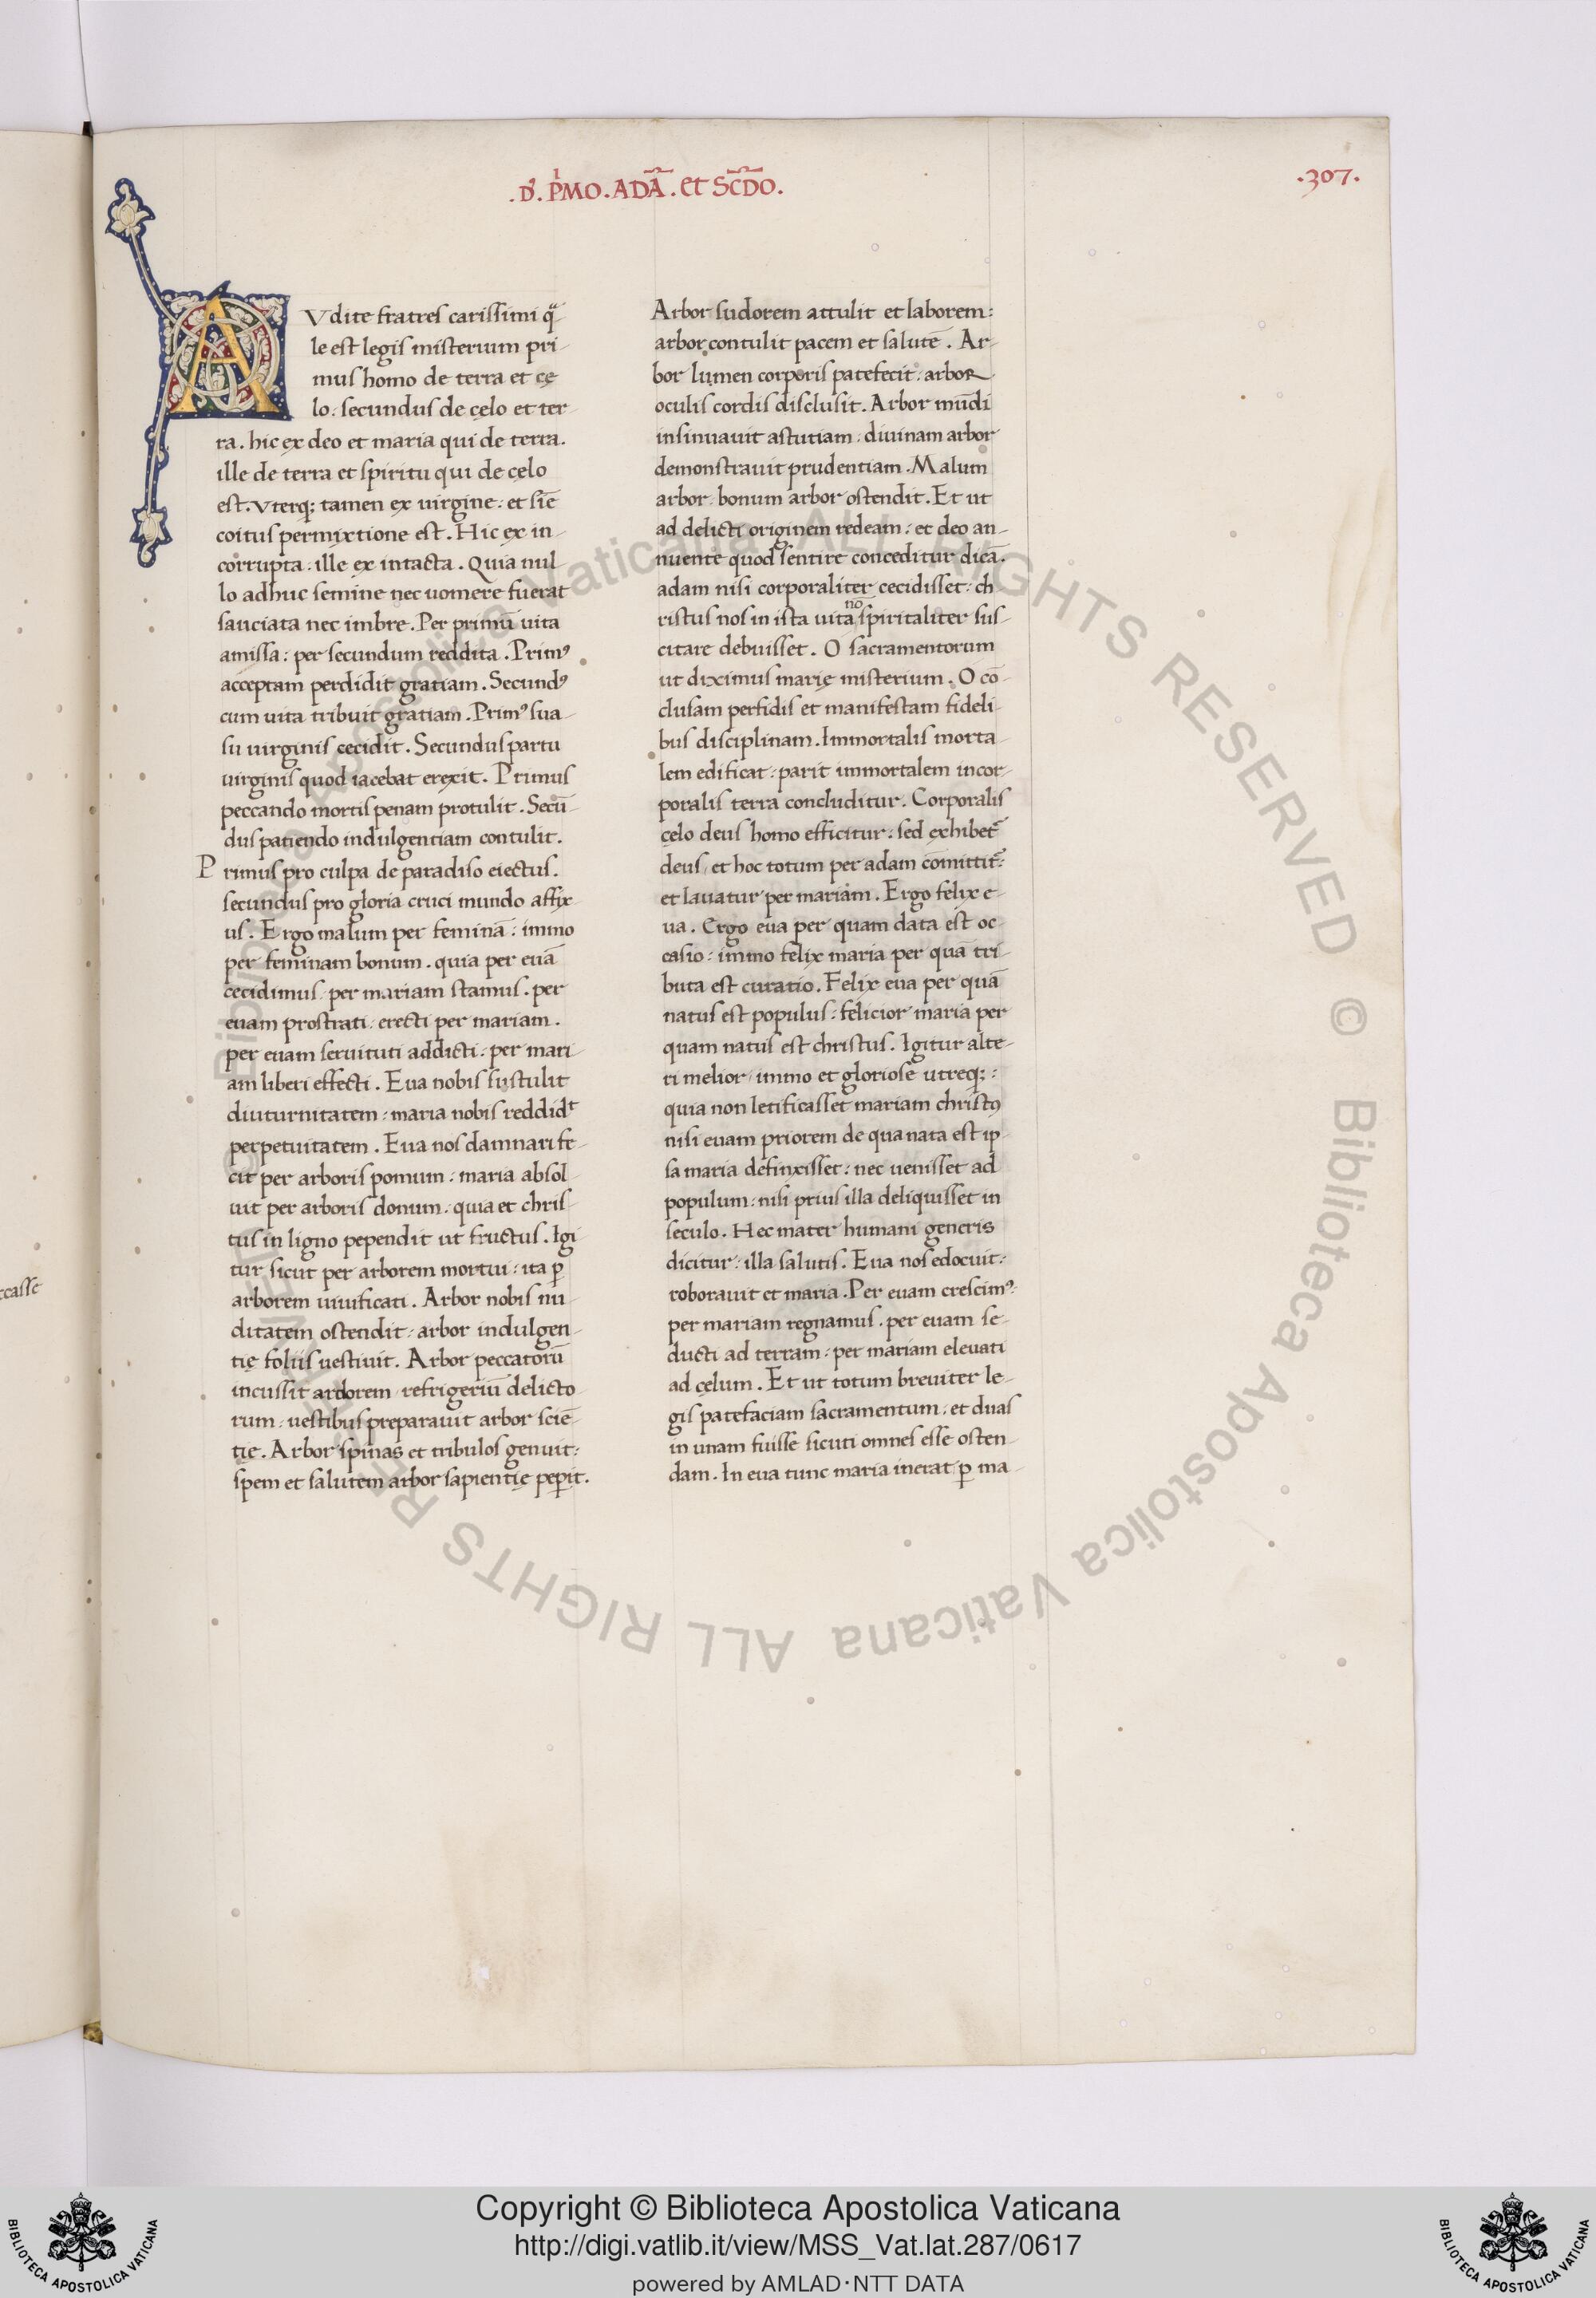 .D̄. PͥMO. ADĀ. et SC̄DO.
.307.
AVdite fratres carissimi qͣ-
le est legis misterium pri-
mus homo de terra et cę
lo: secundus de cęlo et ter-
ra. hic ex deo et maria qui de terra.
ille de terra et spiritu qui de cęlo
est. Vterq; tamen ex uirgine: et siē
coitus permixtione est. Hic ex in-
corrupta: ille ex intacta. Quia nul-
lo adhuc semine nec uomere fuerat
sauciata nec imbre. Per primū uita
amissa: per secundum reddita. Primꝰ
acceptam perdidit gratiam. Secundꝰ
cum uita tribuit gratiam. Primꝰ sua-
su uirginis cecidit. Secundus partu
uirginis quod iacebat erexit. Primus
peccando mortis penam protulit. Secū-
dus patiendo indulgentiam contulit.
Primus pro culpa de paradiso eiectus.
secundus pro gloria cruci mundo affix-
us. Ergo malum per feminā: immo
per feminam bonum. quia per euā
cecidimus: per mariam stamus. per
euam prostrati: erecti per mariam.
per euam seruituti addicti: per mari-
am liberi effecti. Eua nobis sustulit
diuturnitatem: maria nobis reddidͭ
perpetuitatem. Eua nos damnari fe-
cit per arboris pomum: maria absol-
uit per arboris donum: quia et chris-
tus in ligno pependit ut fructus. Igi
tur sicut per arborem mortui: ita ꝑ
arborem uiuificati. Arbor nobis nu-
ditatem ostendit: arbor indulgen-
tię foliis uestiuit. Arbor peccatorū
incussit ardorem: refrigeriū delicto-
rum: uestibus preparauit arbor sciē-
tię. Arbor spinas et tribulos genuit:
spem et salutem arbor sapientię peperit.
Arbor sudorem attulit et laborem:
arbor contulit pacem et salutē. Ar-
bor lumen corporis patefecit: arbor
oculis cordis disclusit. Arbor mūdi
insinuauit astutiam: diuinam arbor
demonstrauit prudentiam. Malum
arbor: bonum arbor ostendit. Et ut
ad delicti originem redeam: et deo an-
nuente quod sentire conceditur dicā.
adam nisi corporaliter cecidisset: ch
nō
ristus nos in ista uita spiritaliter sus-
citare debuisset. O sacramentorum
ut diximus marię misterium. O cō-
clusam perfidis et manifestam fideli-
bus disciplinam. Immortalis morta-
lem edificat: parit immortalem incor-
poralis terra concluditur. Corporalis
cęlo deus homo efficitur: sed exhibet᷑
deus: et hoc totum per adam cōmittit᷑:
et lauatur per mariam. Ergo felix e-
ua. Ergo eua per quam data est oc-
casio: immo felix maria per quā tri-
buta est curatio. Felix eua per quā
natus est populus: felicior maria per
quam natus est christus. Igitur alte-
ri melior: immo et gloriose utreq;:
quia non letificasset mariam christꝰ
nisi euam priorem de qua nata est ip-
sa maria definxisset: nec uenisset ad
populum: nisi prius illa deliquisset in
seculo. Hec mater humani generis
dicitur: illa salutis. Eua nos edocuit:
roborauit et maria. Per euam crescimꝰ:
per mariam regnamus. per euam se-
ducti ad terram: per mariam eleuati
ad cęlum. Et ut totum breuiter le-
gis patefaciam sacramentum: et duas
in unam fuisse sicuti omnes esse osten-
dam. In eua tunc maria inerat: ꝑ ma-
ccasse
© Biblioteca Apostolica Vaticana ALL RIGHTS RESERVED © Biblioteca Apostolica Vaticana ALL RIGHTS RESERVED
Copyright © Biblioteca Apostolica Vaticana
http://digi.vatlib.it/view/MSS_Vat.lat.287/0617
powered by AMLAD·NTT DATA
BIBLIOTECA APOSTOLICA VATICANA
BIBLIOTECA APOSTOLICA VATICANA